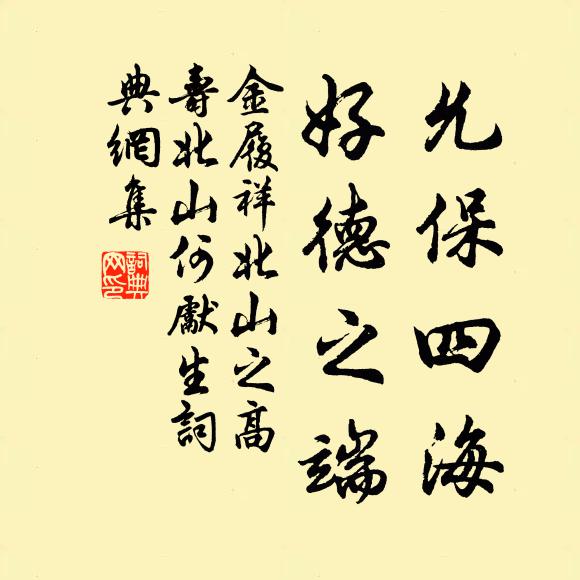 允保四海
好德之端
金履祥北山之高
壽北山何獻生詞
典網集
詞典網印